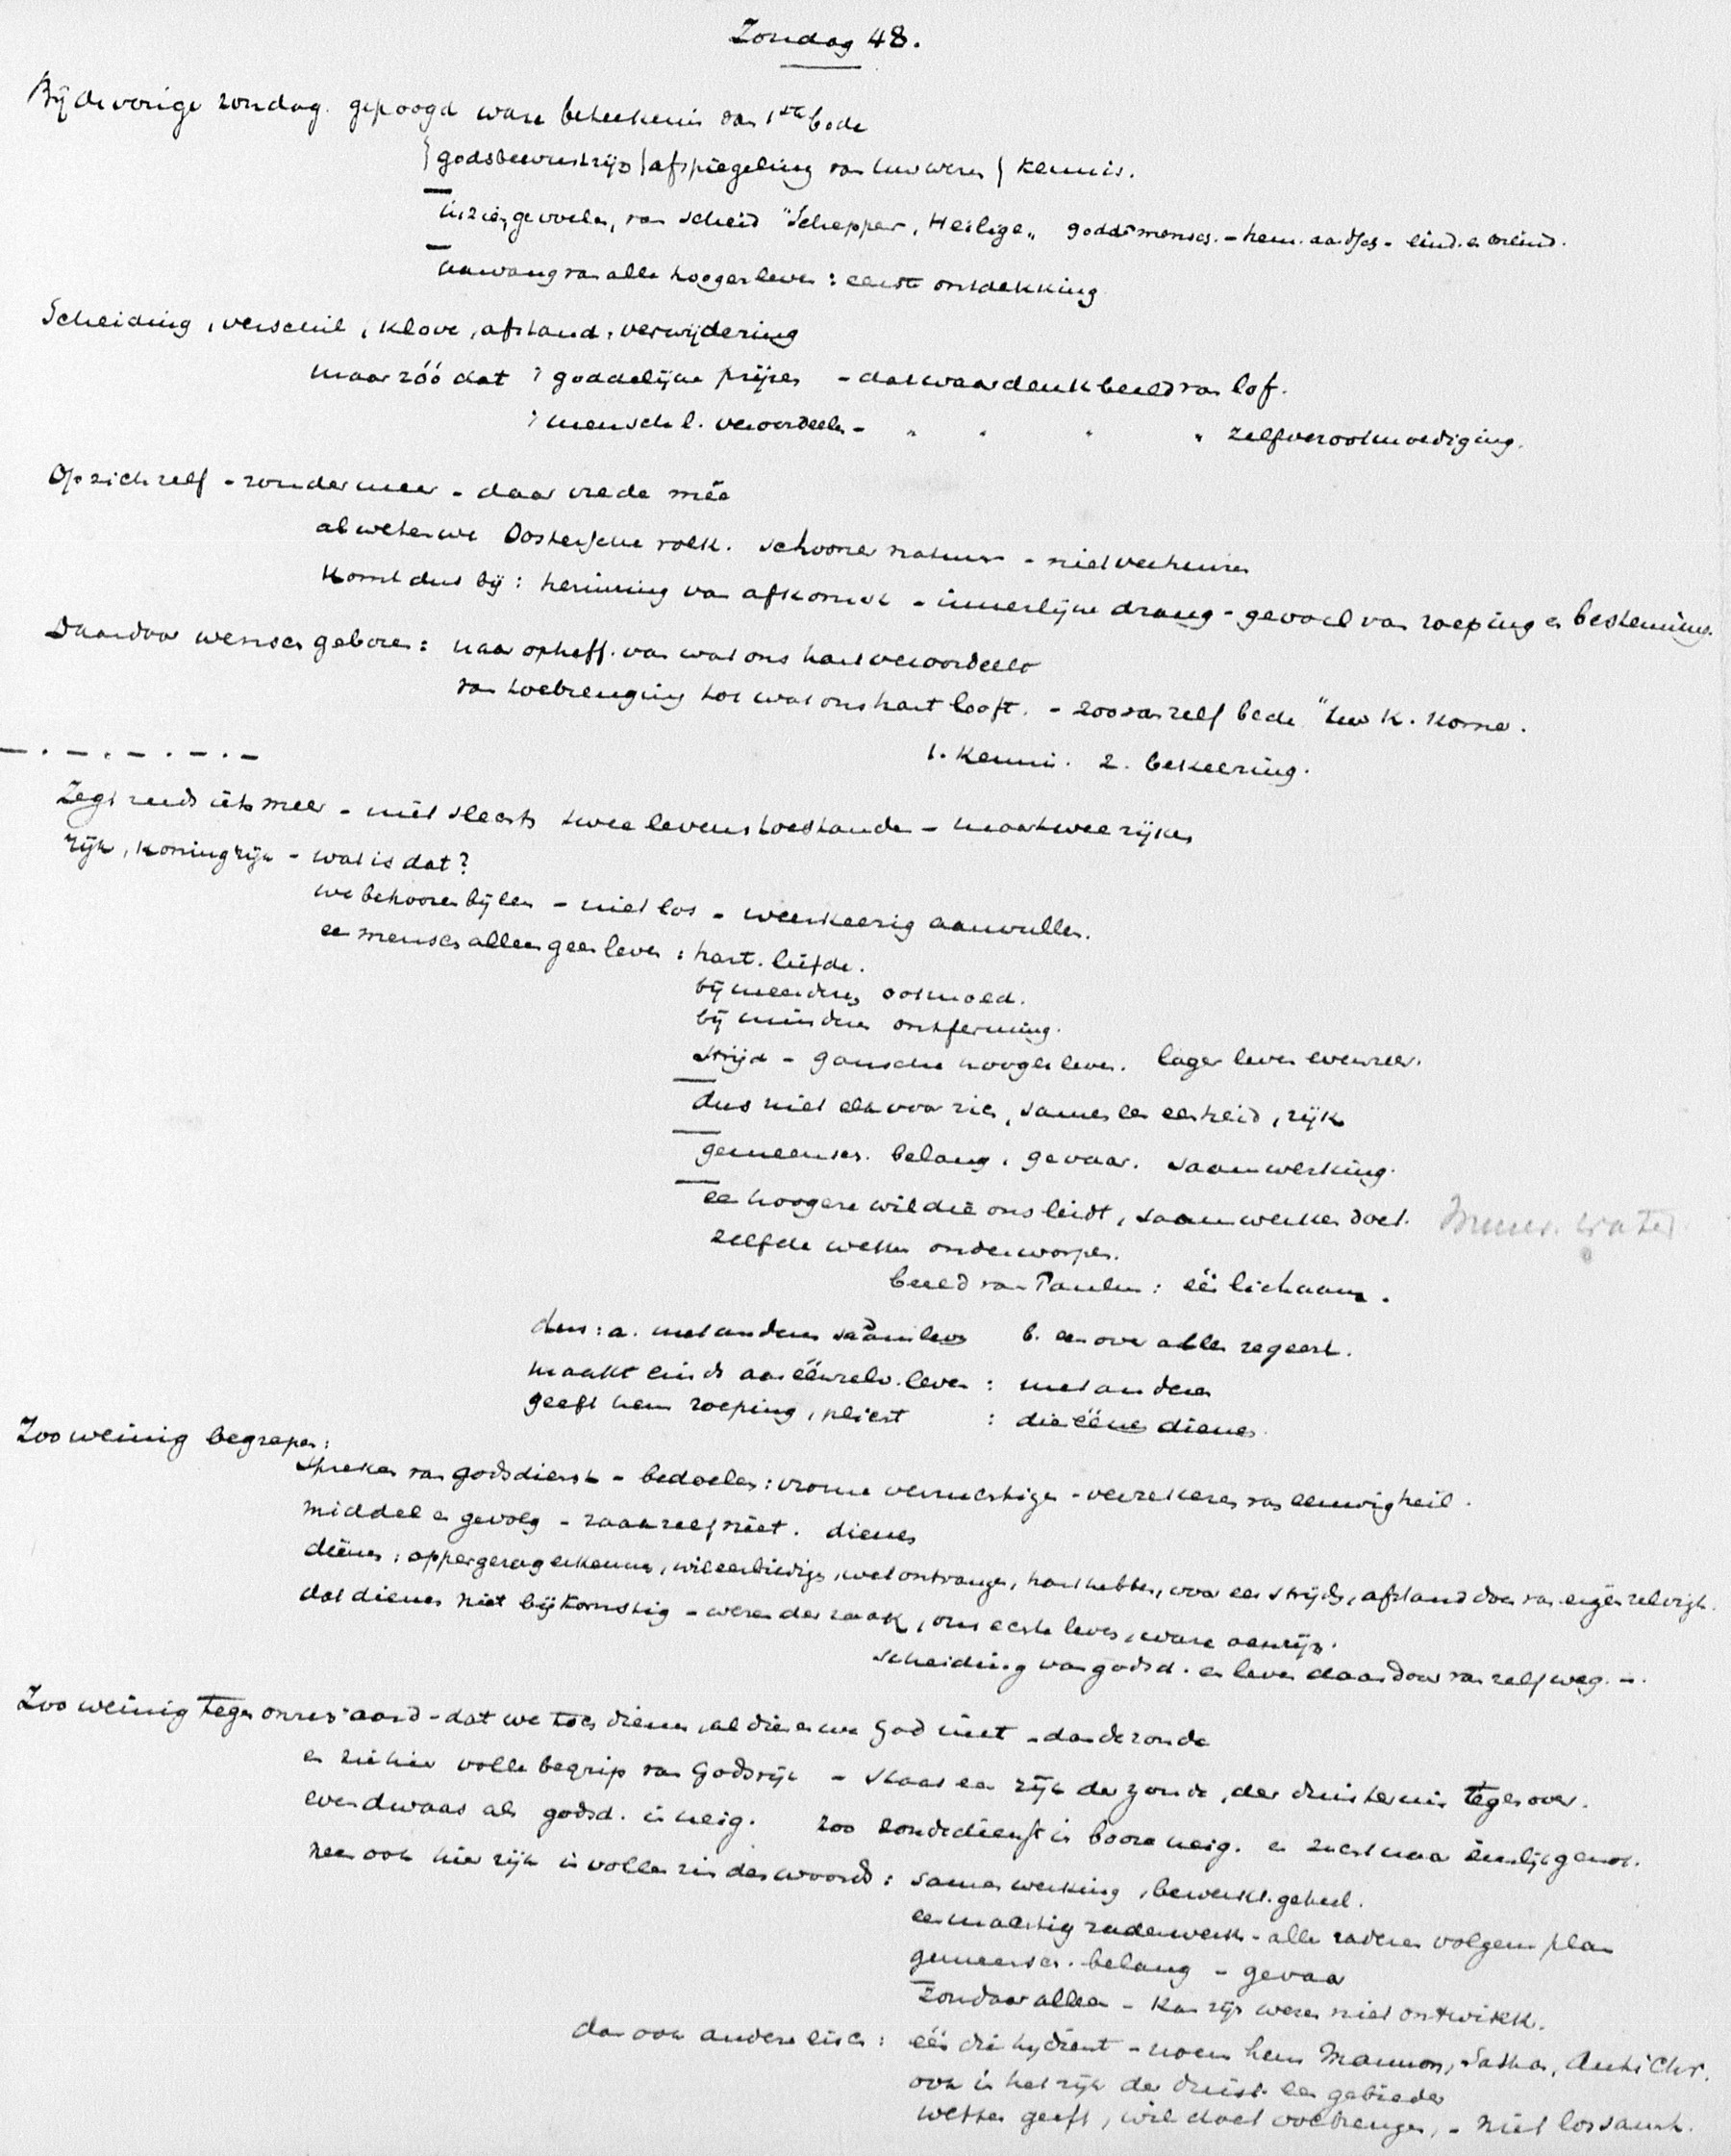 Zondag 48.
Bij de vorige zondag. gepoogd ware beteekenis van 1ste bede
godsbewustzijn | afspiegeling van hun wezen | Kennis.
inzien, gevoelen, van scheid "Schepper, Heilige" godd. mensch. - hem. aardsch - eind. en oneind.
aanvang van alle hooger leven : eerste ontdekking
Scheiding, verschil, klove, afstand, verwijdering
maar zóó dat 't goddelijke prijzen - dat waar denkbeeld van lof.
't menschl. veroordeelen - " " " " zelfverootmoediging.
Op zich zelf - zonder meer - daar vrede meê
als weten we Oostersche volk. schoone natuur - niet verhuizen
Komt dus bij : herinnering van afkomst - innerlijke drang - gevoel van roeping en bestemming.
Daardoor wensch geboren : naar opheff. van wat ons hart veroordeelt
van toebrenging tot wat ons hart looft. - zoo van zelf bede "Uw K. kome.
1. Kennis. 2. bekeering.
Zegt reeds iets meer - niet slechts twee levenstoestanden - maar twee rijken
rijk, koningrijk - wat is dat?
we behooren bijeen - niet los - wederkeerig aanvullen.
een mensch alleen geen leven : hart. liefde.
bij meerdere, ootmoed.
bij mindere ontferming.
strijd - gansche hooger leven. lager leven evenzeer.
dus niet elk voor zich, samen een eenheid, rijk
gemeensch. belang, gevaar. saamwerking.
een hoogere wil die ons leidt, saamwerken doet.
zelfde wetten onderworpen.
beeld van Paulus : één lichaam.
dus : a. met anderen sáámleven b. een over allen regeert.
maakt eind aan éénzelv. leven : met anderen
geeft hem roeping, plicht : die ééne dienen.
Zoo weinig begrepen :
Spreken van godsdienst - bedoelen : vrome verrichtingen - verzekeren van eeuwig heil.
middel en gevolg - zaak zelf niet. dienen
dienen : oppergezag erkennen, wil eerbiedigen, wet ontvangen, hart hebben, voor eer strijden, afstand doen van eigen zelvigh.
dat dienen niet bijkomstig - wezen der zaak, ons echte leven, ware aanzijn.
Scheiding van godsd. en leven daardoor van zelf weg. -
Zoo weinig tegen onzen aard - dat we toch dienen, al dienen we God niet - dan de zonde
en ziehier volle begrip van Godsrijk - staat een rijk der zonde, der duisternis tegenover.
even dwaas als godsd. is neig. zoo zondedienst is booze neig. en zucht naar zinlijk genot.
neen ook hier rijk in vollen zin des woords : samenwerking, bewerkt. geheel.
een machtig raderwerk - alle raderen volgens plan
gemeensch. belang - gevaar
Zondaar alleen - kan zijn wezen niet ontwikk.
dan ook andere eisch : één die hij dient - noem hem Mammon, Sathan, AntiChr.
ook in het rijk der duist. een gebieder
wetten geeft, wil doet volbrengen, - niet los samenh.